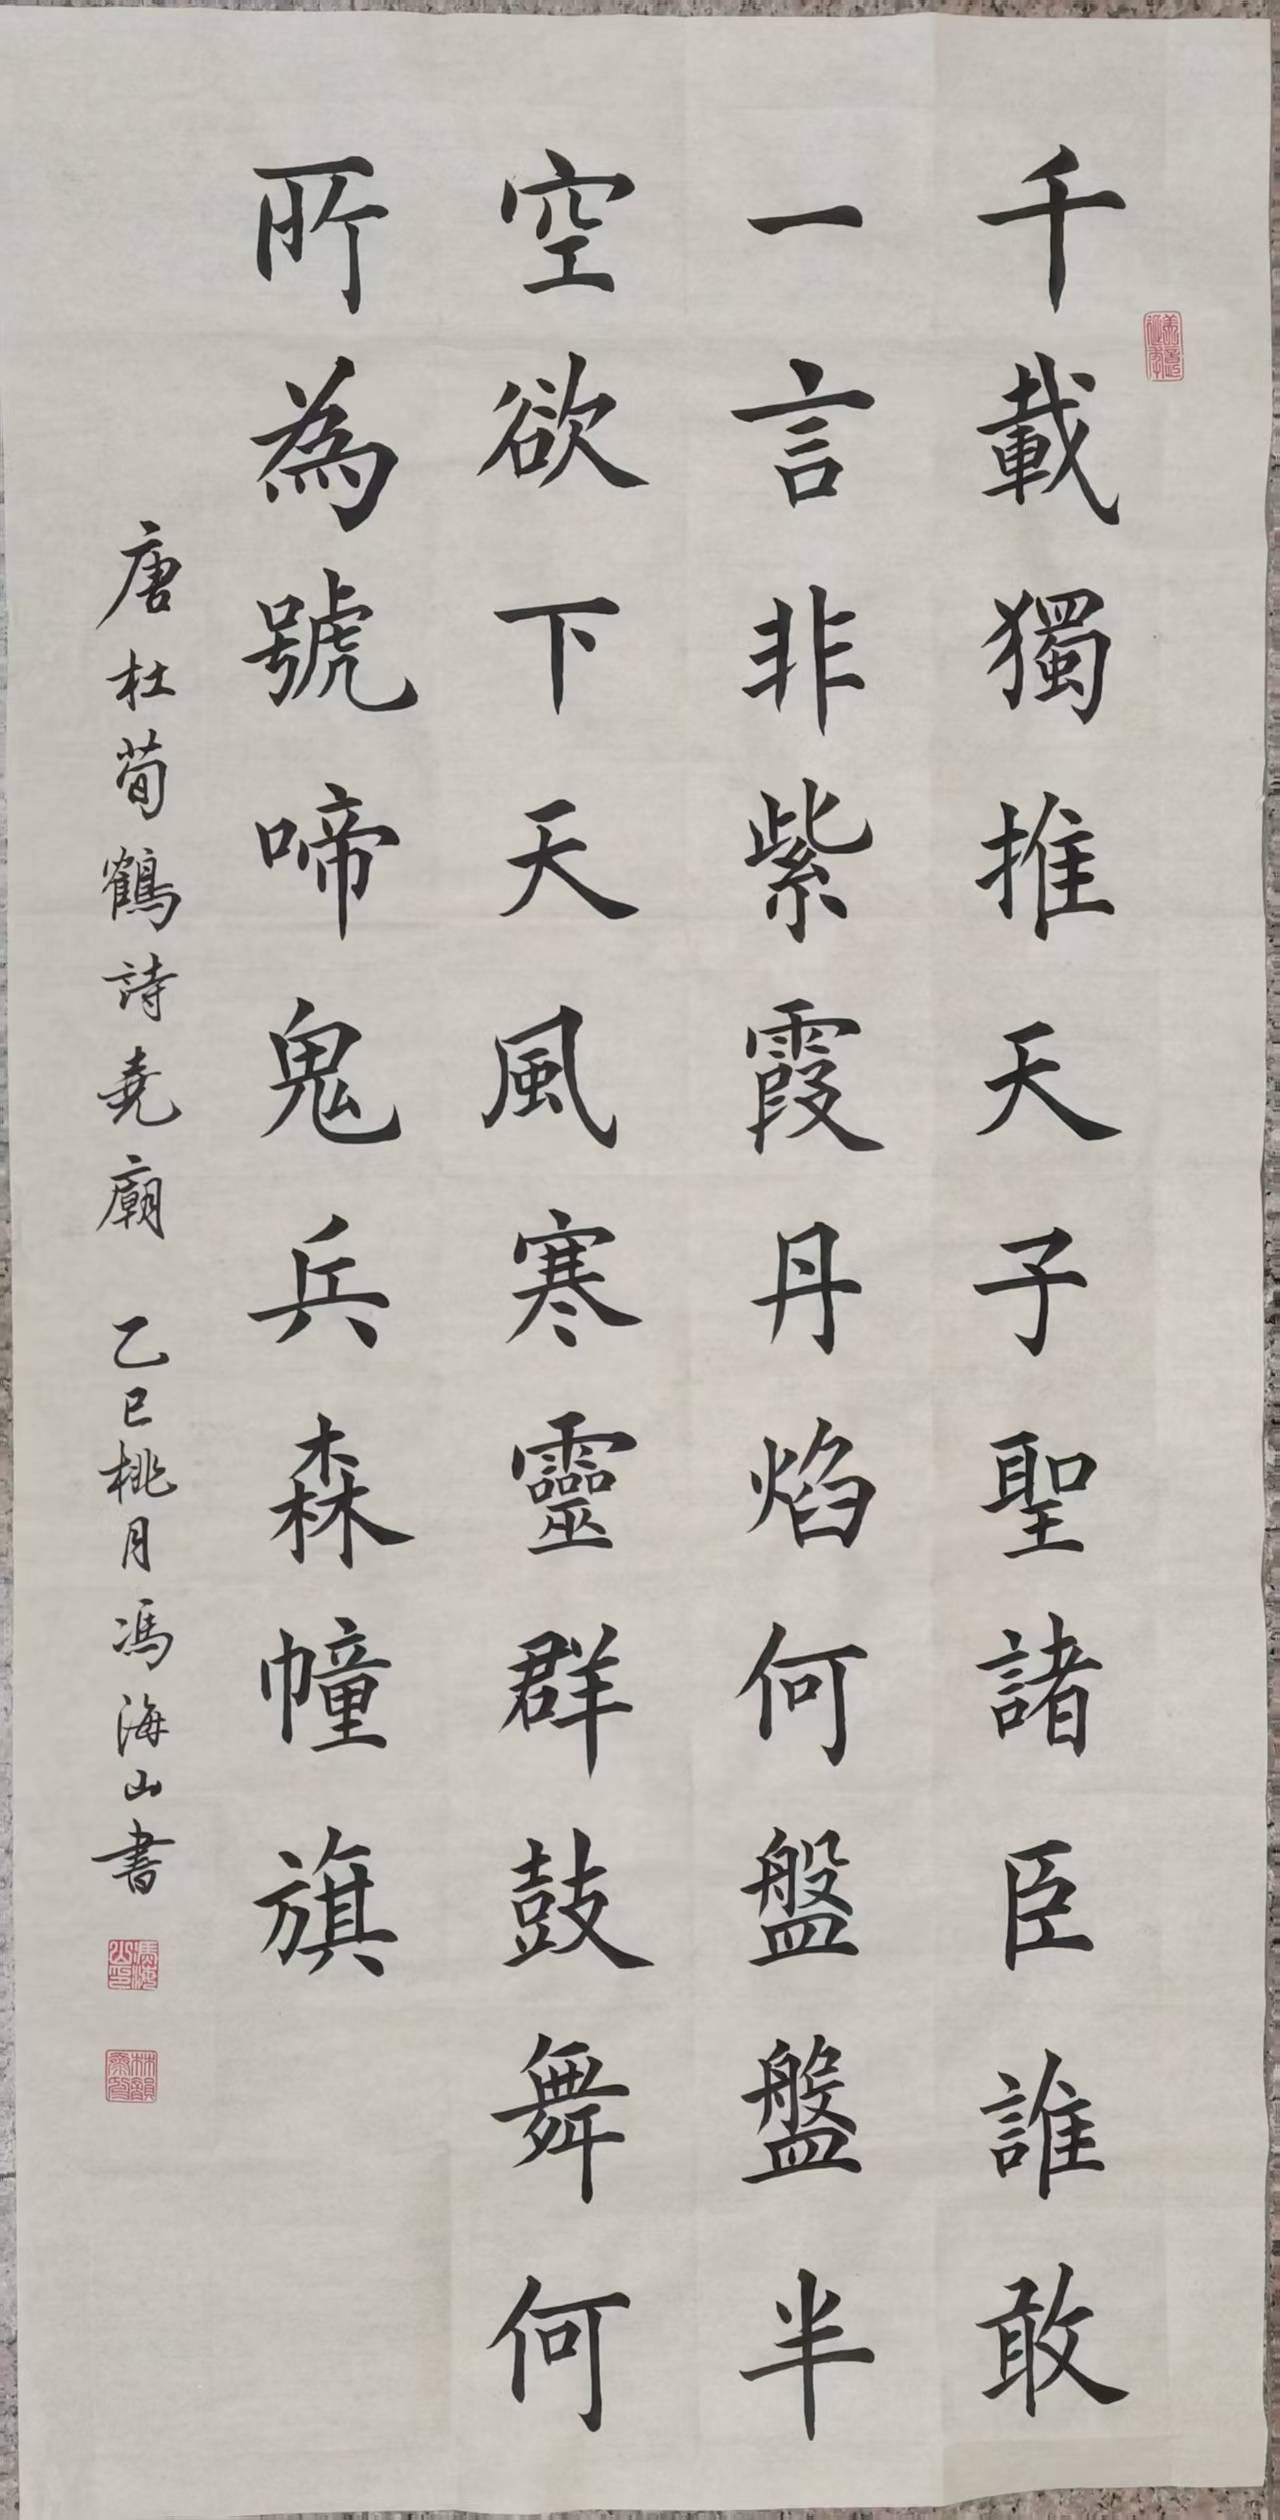 千載獨推天子聖諸臣誰敢
一言非紫霞丹焰何盤盤半
空欲下天風寒靈群鼓舞何
所為號啼鬼兵森幢旗
唐杜荀鶴詩堯廟 乙巳桃月馮海山書
馮海山印